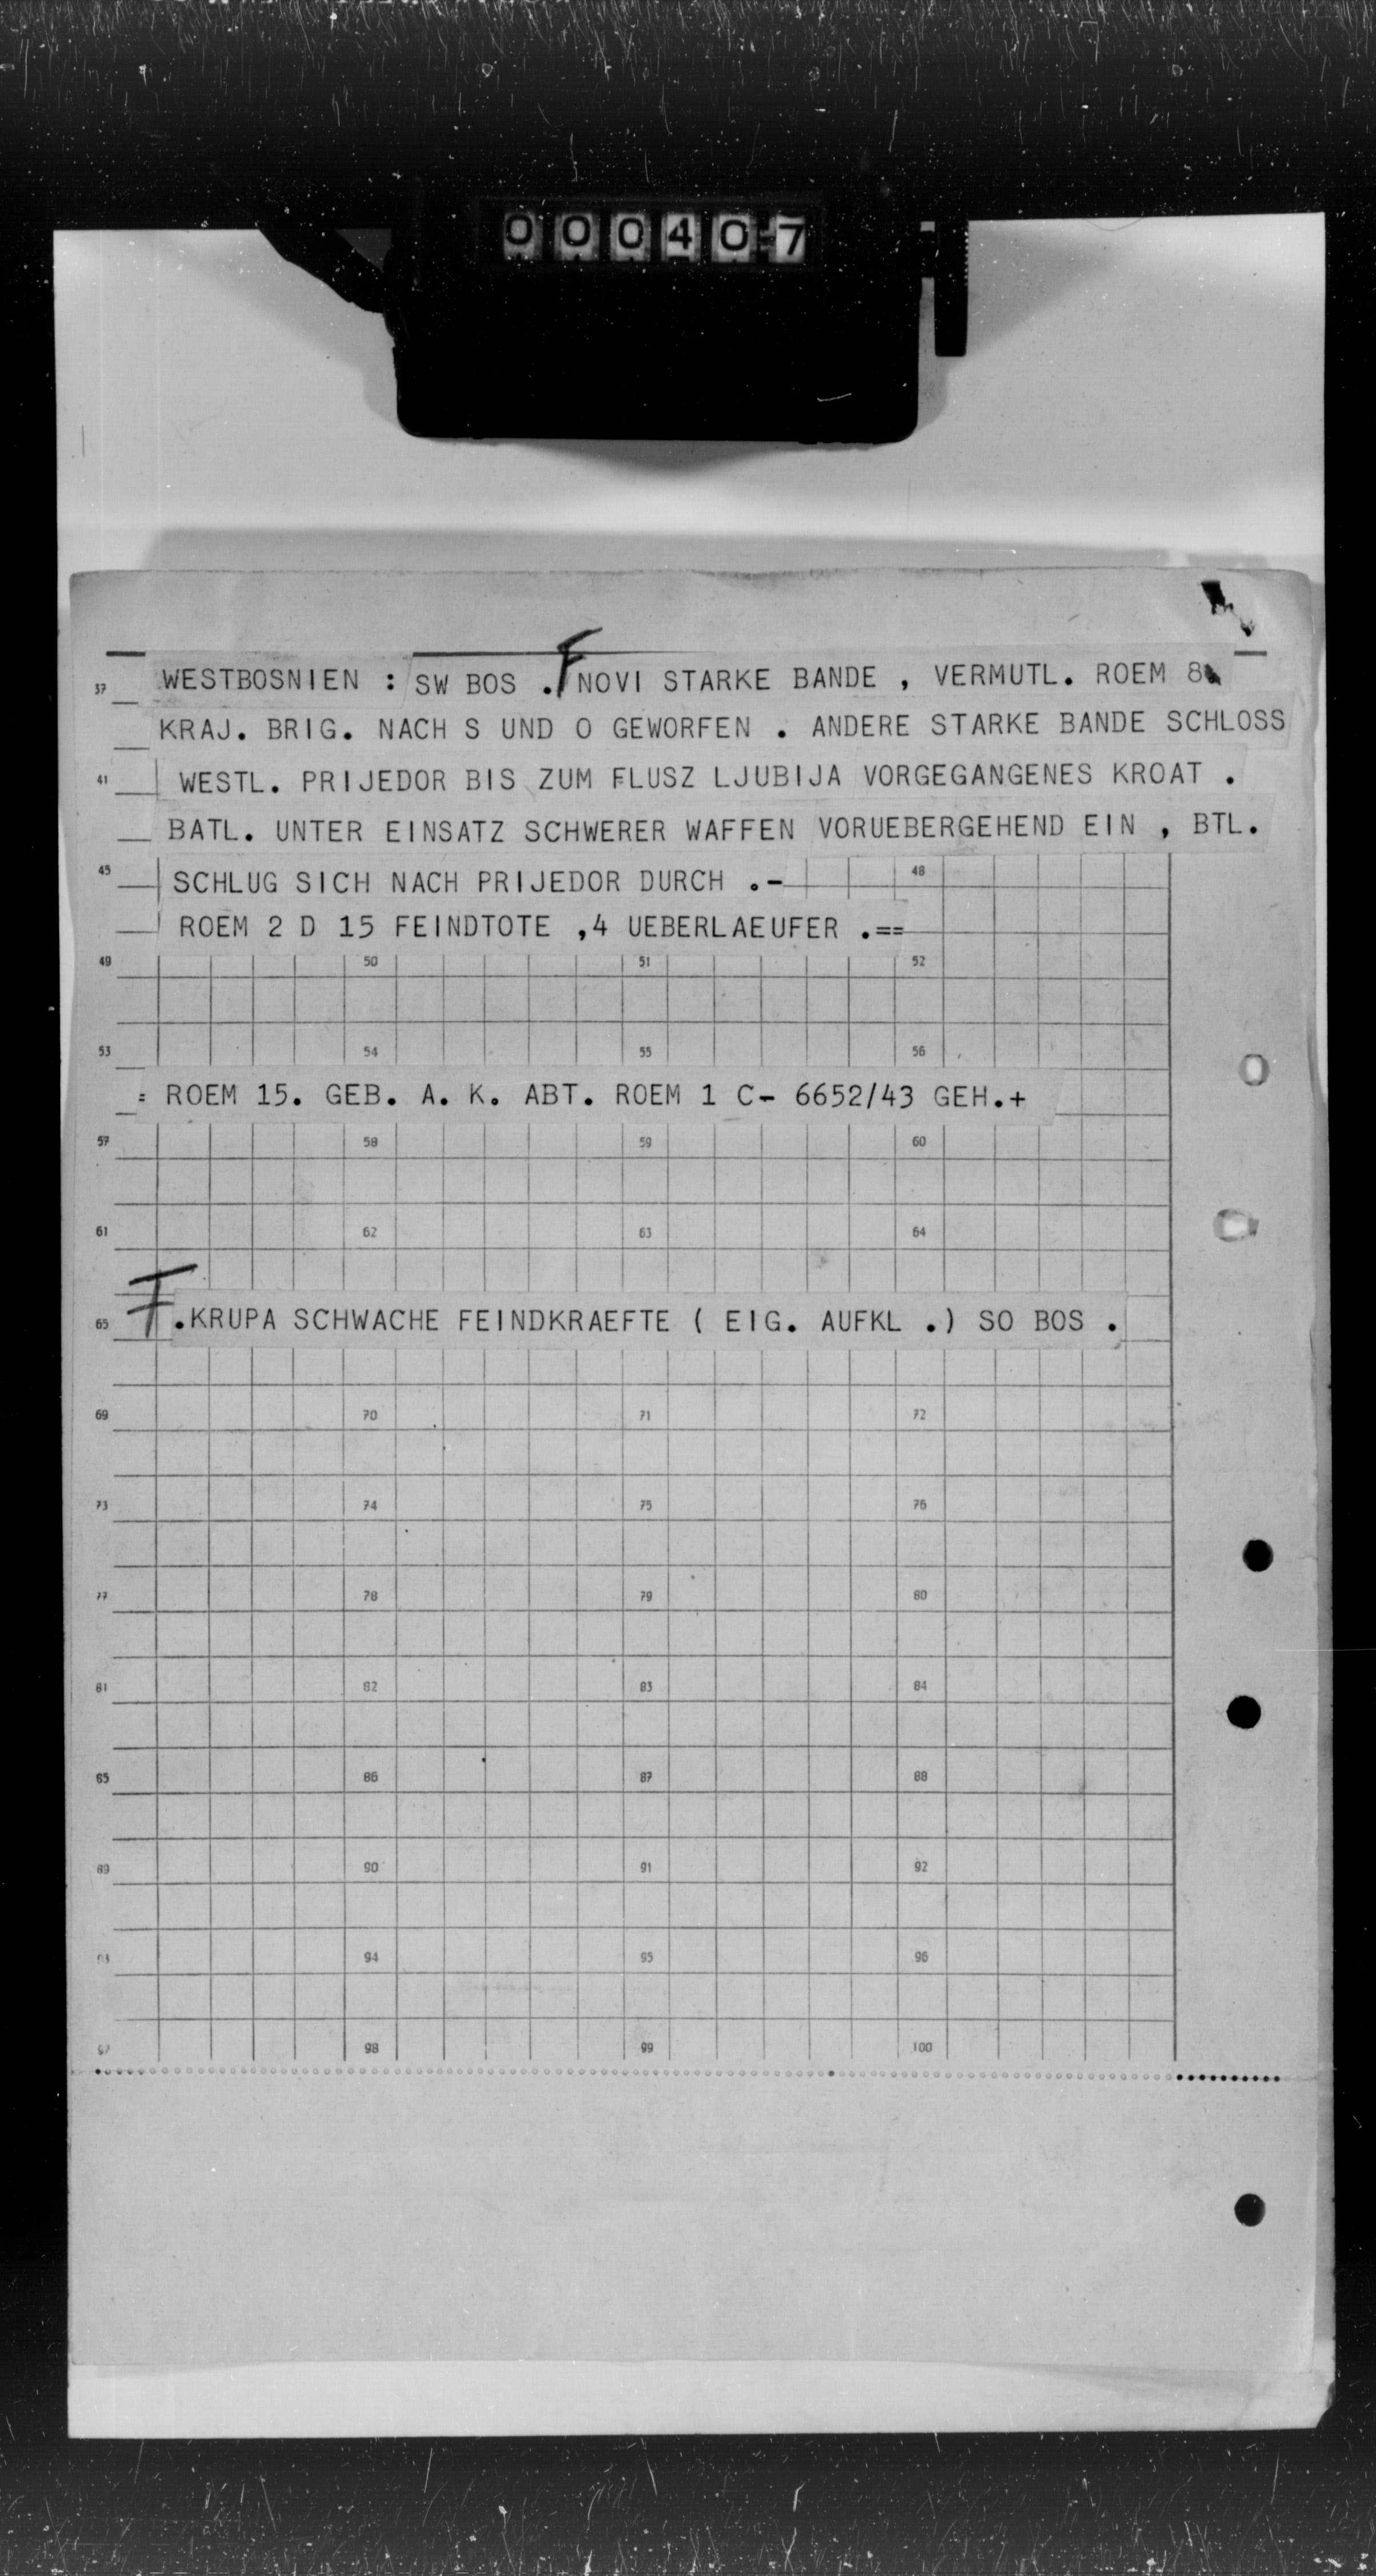 000407
37 WESTBOSNIEN : SW BOS . F NOVI STARKE BANDE , VERMUTL. ROEM 8
KRAJ. BRIG. NACH S UND O GEWORFEN . ANDERE STARKE BANDE SCHLOSS
41 WESTL. PRIJEDOR BIS ZUM FLUSZ LJUBIJA VORGEGANGENES KROAT .
BATL. UNTER EINSATZ SCHWERER WAFFEN VORUEBERGEHEND EIN , BTL.
45 SCHLUG SICH NACH PRIJEDOR DURCH .- 48
ROEM 2 D 15 FEINDTOTE ,4 UEBERLAEUFER .==
49 50 51 52
53 54 55 56
= ROEM 15. GEB. A. K. ABT. ROEM 1 C- 6652/43 GEH.+
57 58 59 60
61 62 63 64
65 F .KRUPA SCHWACHE FEINDKRAEFTE ( EIG. AUFKL .) SO BOS .
69 70 71 72
73 74 75 76
77 78 79 80
81 82 83 84
85 86 87 88
89 90 91 92
93 94 95 96
97 98 99 100